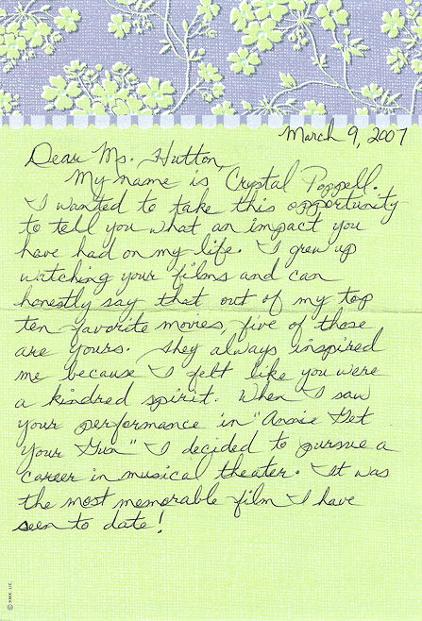 March 9, 2007
Dear Ms. Hutton,
My name is Crystal Poppell.
I wanted to take this opportunity
to tell you what an impact you
have had on my life. I grew up
watching your films and can
honestly say that out of my top
ten favorite movies, five of those
are yours. They always inspired
me because I felt like you were
a kindred spirit. When I saw
your performance in "Annie Get
Your Gun" I decided to pursue a
career in musical theater. It was
the most memorable film I have
seen to date!